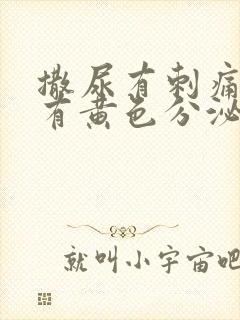 撒尿有刺痛
有黄色分泌
就叫小宇宙吧